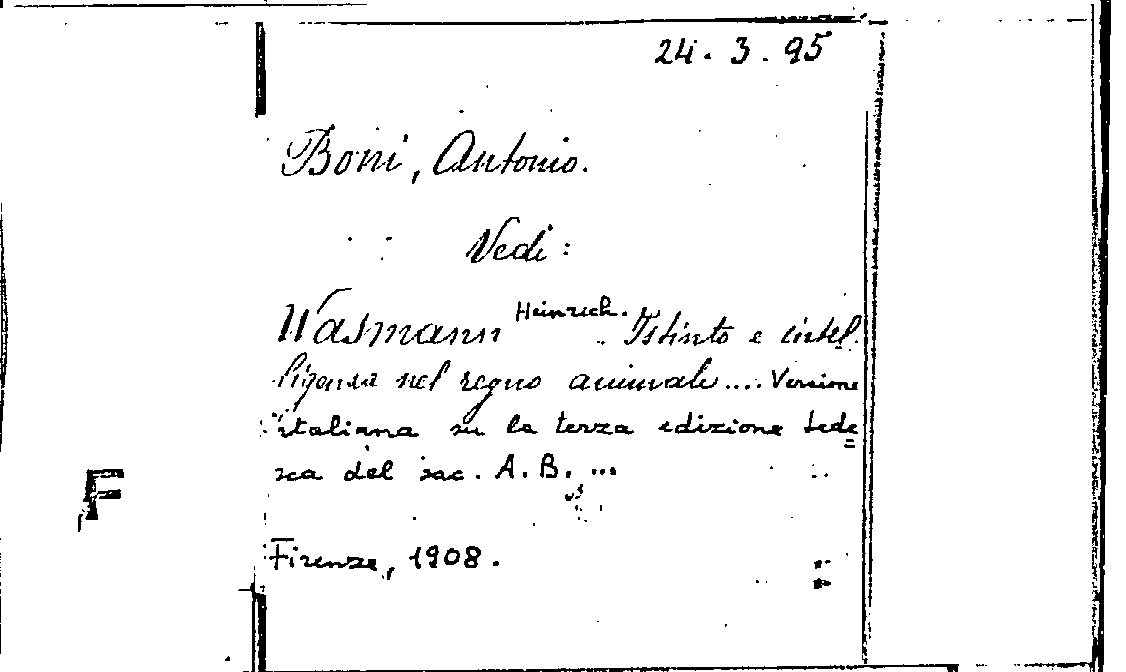 24.3.95
Boni, Antonio.
Vedi:
Wasmann Heinrich. Istinto e intel
ligenza nel regno animale.... Versione
italiana su la terza edizione tede
sca del sac. A.B. ...
F
Firenze, 1908.